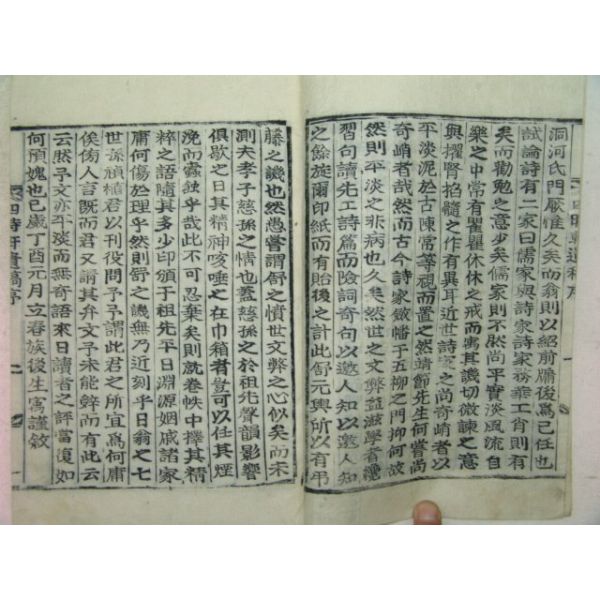 洞河氏門厥惟久矣而翁則以紹前牖後爲己任也
試論詩有二家曰儒家與詩家詩家務奉工肖則有
矣而勸勉之意少矣儒家則不然尚平實淡風流自
樂之中常有瞿瞿休休之戒而寓其譏切微諫之意
與擢腎掐髓之作有異耳近世詩家之尚奇峭者以
平淡泥於古陳常等視而置之然靖節先生何嘗尚
奇峭者哉然而古今詩家斂幡于五柳之門抑何故
然則平淡之非病也久矣然世之文弊益滋學者
習句讀先工詩篇而險詞奇句以邀人知以邀人知
之餘旋爾印紙而有貽後之計此舒元興所以有弔
藤之譏也然愚嘗謂舒之憤世文弊之心似矣而未
測夫孝子慈孫之情也蓋慈孫之於祖先聲韻影響
俱歇之日其精神咳唾之在巾箱者豈可以任其煙
浼而蠹蝕乎哉此不可忍棄矣則就卷帙中擇其精
粹之語隨其多少印頒于祖先平日淵源姻戚諸家
庸何傷於理乎然則舒之譏無乃近刻乎日翁之七
世孫禎植君以刊役問予予謂此君之所宜爲何庸
俟傍人言旣而君又謂其弁文予未能辭而有此云
云然予文亦平淡而無奇語來日讀者之評當復如
何預媿也已歲丁酉元月立春族後生寓謹敘
四時軒遺稿序
二